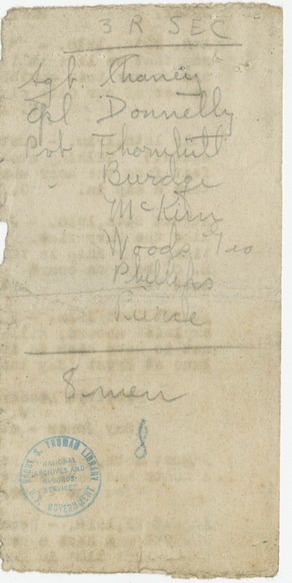 3 R SEC
Sgt. Chaney
Cpl Donnelly
Pvt Thornhill
" Burdge
McKim
Woods, Geo
Phillips
Pierce
8 men
8
HARRY S. TRUMAN LIBRARY
NATIONAL
ARCHIVES AND
RECORDS
SERVICE
U.S. GOVERNMENT